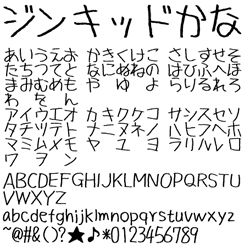 ジンキッドかな
あいうえお かきくけこ さしすせそ
たちつてと なにぬねの はひふへほ
まみむめも や ゆ よ らりるれろ
わ を ん
アイウエオ カキクケコ サシスセソ
タチツテト ナニヌネノ ハヒフヘホ
マミムメモ ヤ ユ ヨ ラリルレロ
ワ ヲ ン
ABCDEFGHIJKLMNOPQRSTU
VWXYZ
abcdefghijklmnopqrstuvwxyz
~@#&()!?★♪♥*0123456789